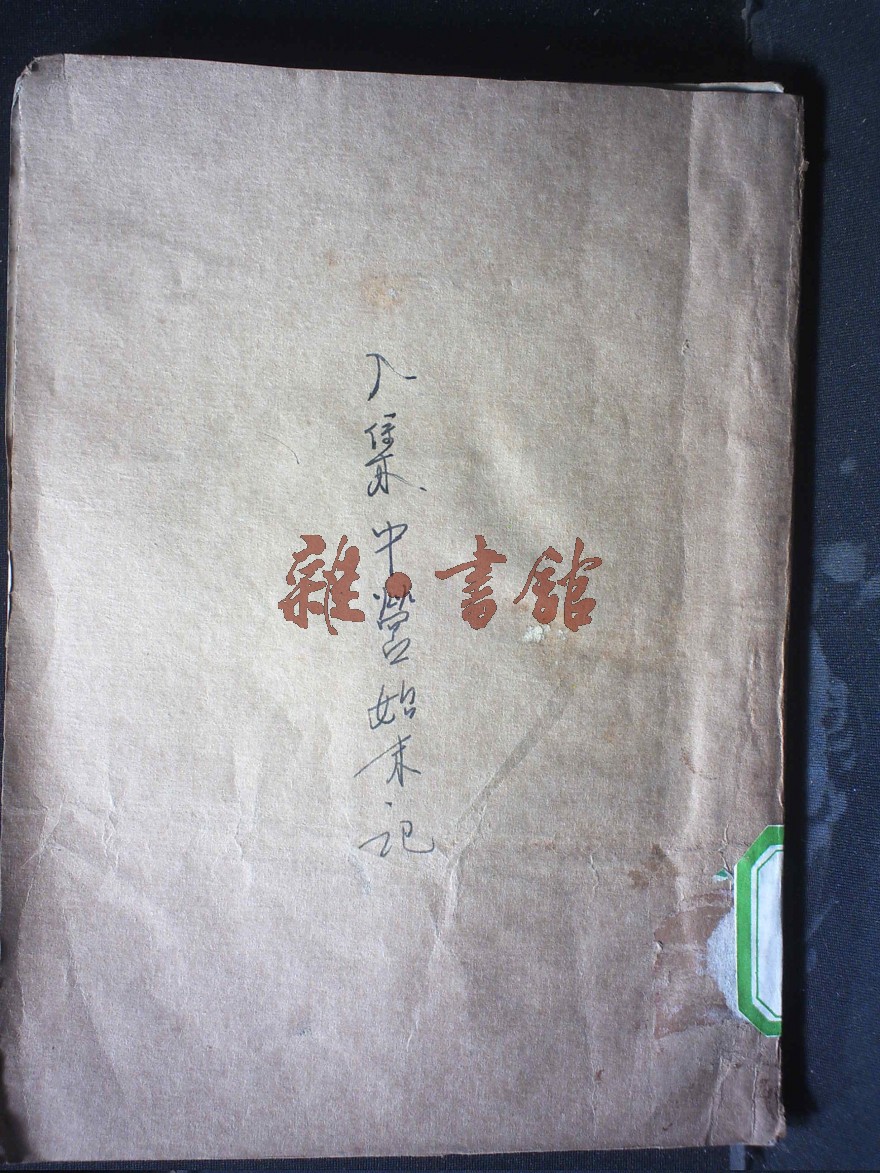 入集中營始末記
雜·書館